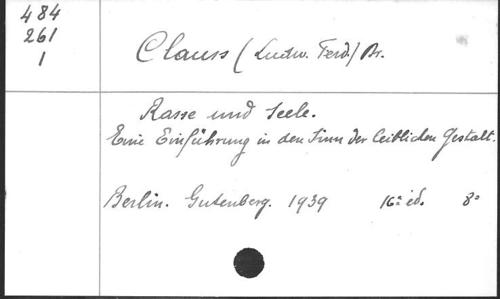 484
261
1
Clauss (Ludw. Ferd.) Dr.
Rasse und Seele.
Eine Einführung in den Sinn der leiblichen Gestalt.
Berlin. Gutenberg. 1939 16ª ed. 8º